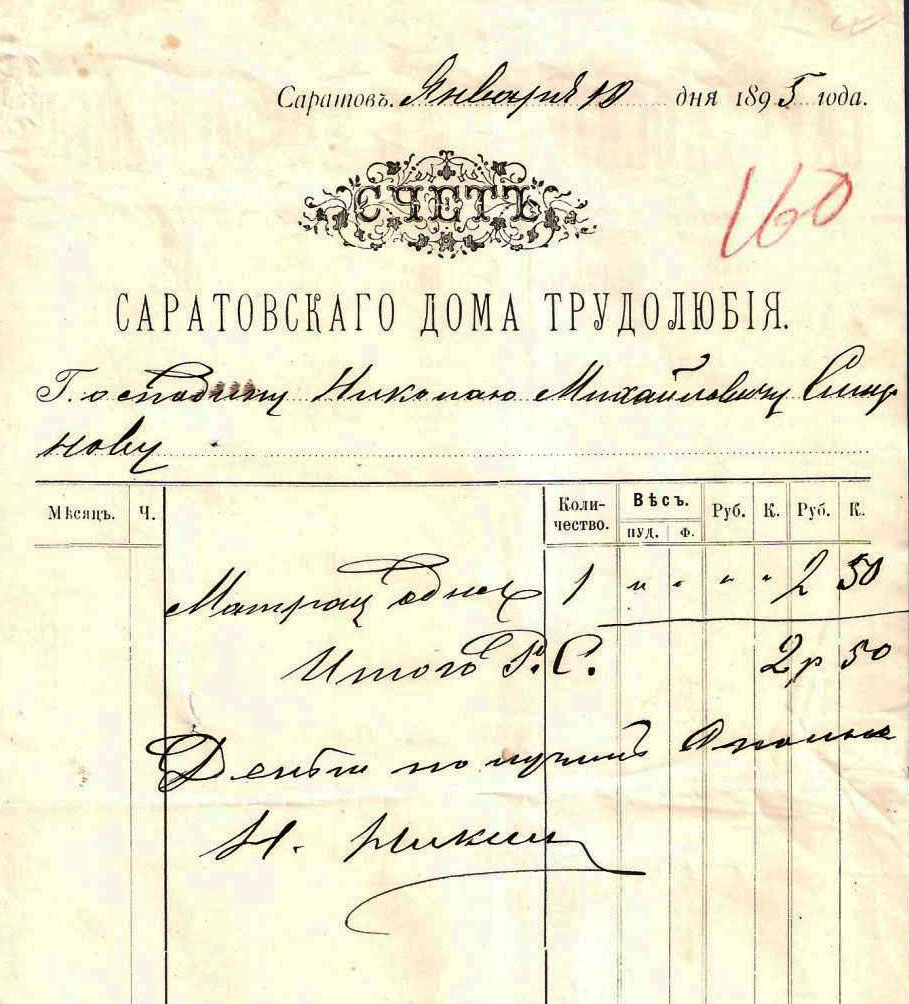 Саратовъ. Января 10 дня 1895 года.
СЧЕТЪ
160
САРАТОВСКАГО ДОМА ТРУДОЛЮБІЯ.
Господину Николаю Михайловичу Смир
нову
Мѣсяцъ. Ч. Коли-чество. Вѣсъ. пуд. Ф. Руб. К. Руб. К.
Матрац один 1 " " " " 2 50
Итого Р. С. 2 р 50
Деньги получилъ сполна
Н.